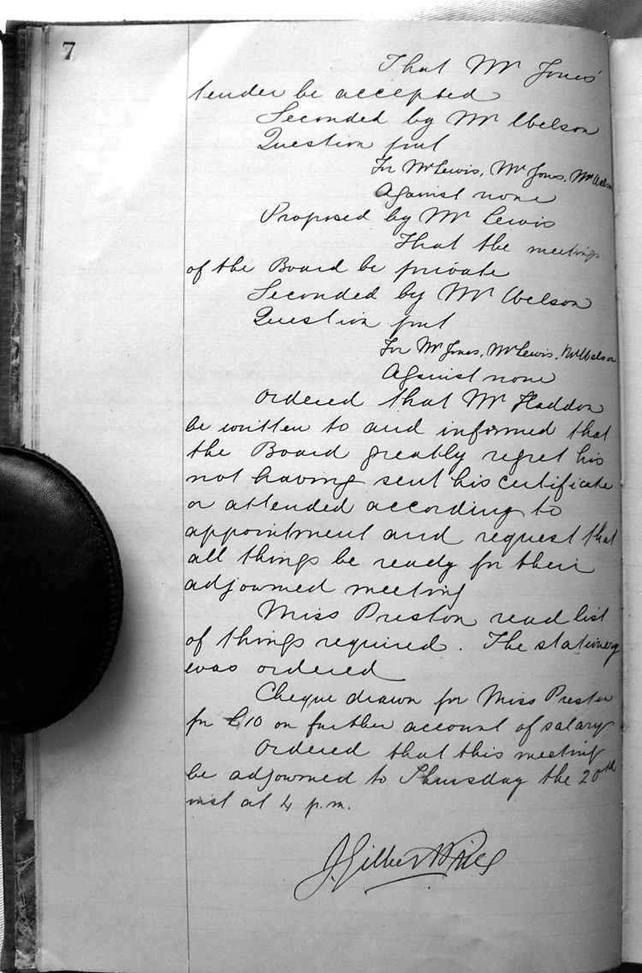 7
That Mr Jones'
tender be accepted
Seconded by Mr Abelson
Question put
For Mr Lewis, Mr Jones, Mr
Against none
Proposed by Mr Lewis
That the meetings
of the Board be private
Seconded by Mr Abelson
Question put
For Mr Jones, Mr Lewis, Mr Abelson
Against none
Ordered that Mr Haddon
be written to and informed that
the Board greatly regret his
not having sent his certificate
or attended according to
appointment and request that
all things be ready for their
adjourned meeting
Miss Preston read list
of things required. The stationery
was ordered
Cheque drawn for Miss Preston
for £10 on further account of salary
Ordered that this meeting
be adjourned to Thursday the 20th
inst at 4 p.m.
J Gilbert